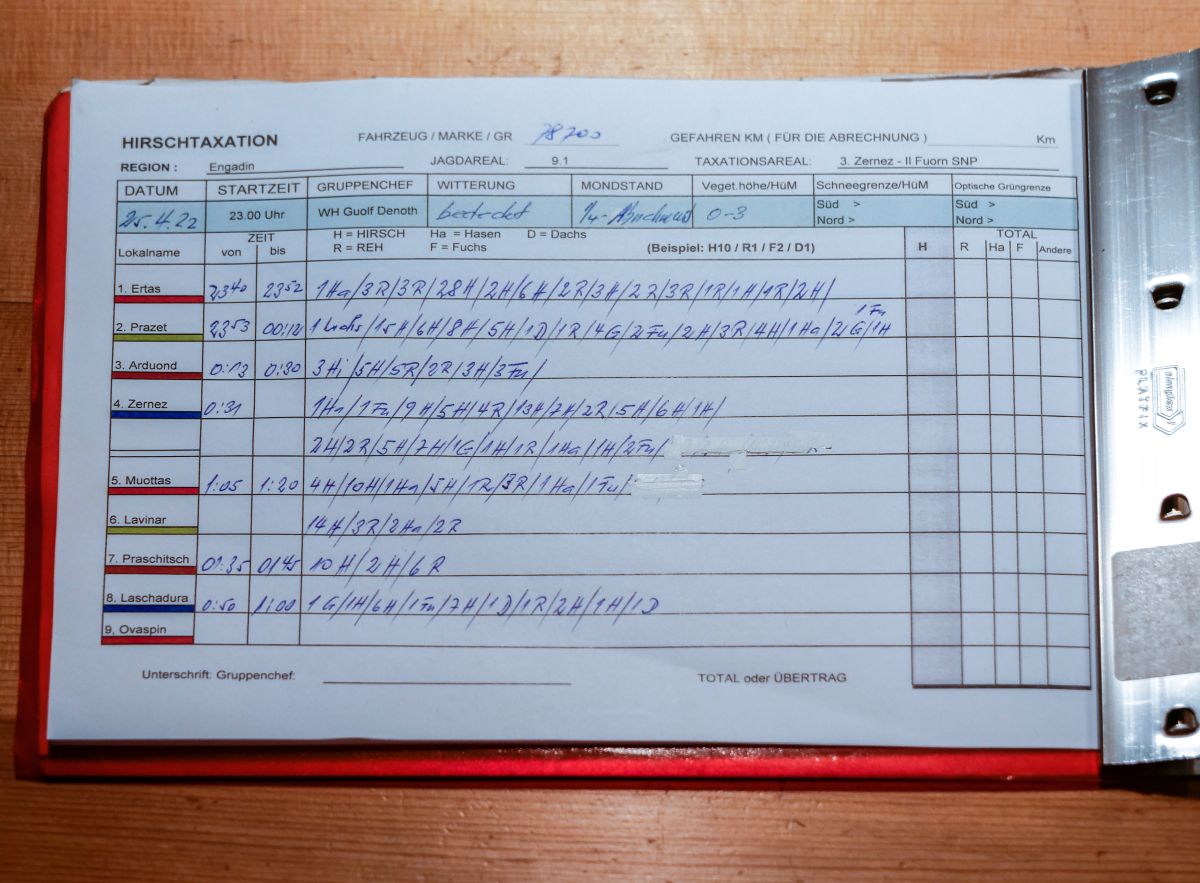 HIRSCHTAXATION FAHRZEUG / MARKE / GR 78700 GEFAHREN KM ( FÜR DIE ABRECHNUNG ) Km
REGION : Engadin JAGDAREAL: 9.1 TAXATIONSAREAL: 3. Zernez - Il Fuorn SNP
DATUM STARTZEIT GRUPPENCHEF WITTERUNG MONDSTAND Veget.höhe/HüM Schneegrenze/HüM Optische Grüngrenze
25.4.22 23.00 Uhr WH Guolf Denoth bedeckt 1/4 - Abnehmend 0-3 Süd > Süd >
Nord > Nord >
ZEIT H = HIRSCH Ha = Hasen D = Dachs TOTAL
Lokalname von bis R = REH F = Fuchs (Beispiel: H10 / R1 / F2 / D1) H R Ha F Andere
1. Ertas 2340 2352 1Ha/3R/3R/28H/2H/6H/2R/3H/2R/3R/1R/1H/1R/2H/
1Fu
2. Prazet 2353 00:12 1Luchs/15H/6H/8H/5H/1D/1R/4G/2Fu/2H/3R/4H/1Ha/2G/1H
3. Arduond 0:13 0:30 3Hi/5H/5R/2R/3H/3Fu/
4. Zernez 0:31 1Ha/1Fu/9H/5H/4R/13H/7H/2R/5H/6H/1H/
2H/2R/5H/7H/1G/1H/1R/1Ha/1H/2Fu/
5. Muottas 1:05 1:20 4H/10H/1Ha/5H/1R/3R/1Ha/1Fu/
6. Lavinar 14H/3R/2Ha/2R
7. Praschitsch 01:35 0145 10H/2H/6R
8. Laschadura 0:50 1:00 1G/1H/6H/1Fu/7H/1D/1R/2H/1H/1D
9, Ovaspin
Unterschrift: Gruppenchef: TOTAL oder ÜBERTRAG
PLAYFIX